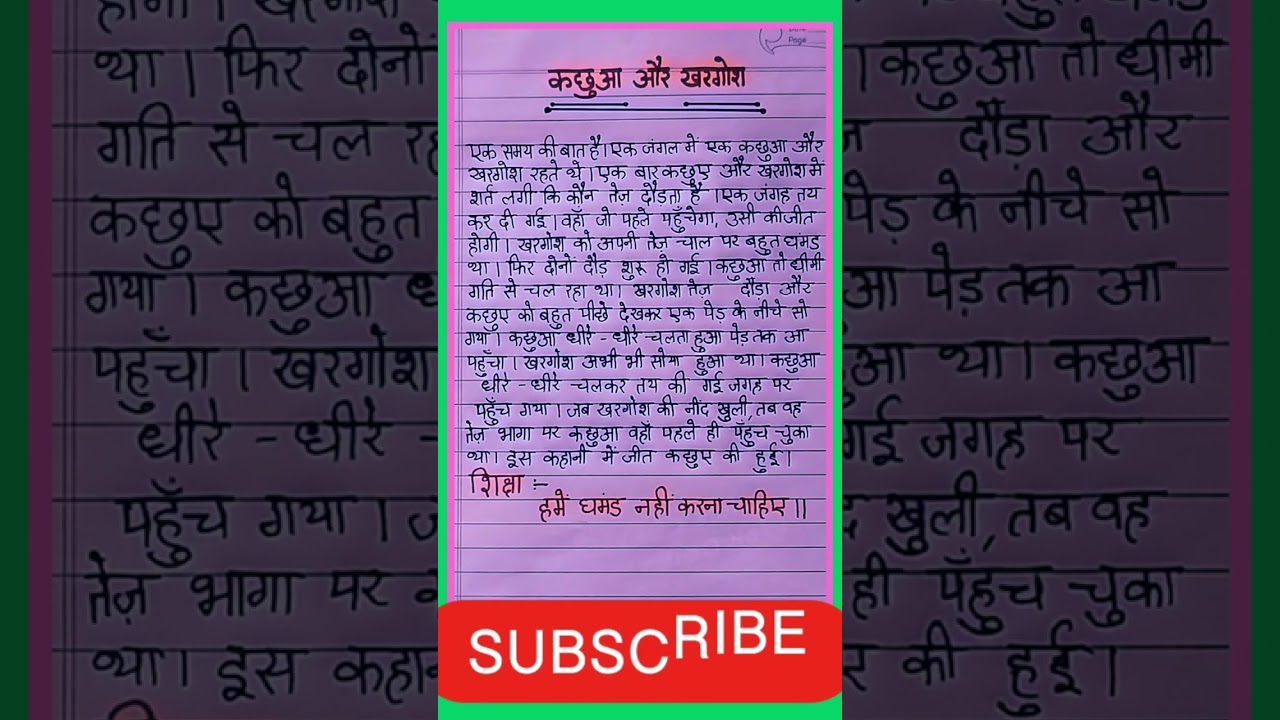 Page
कछुआ और खरगोश
एक समय की बात है। एक जंगल में एक कछुआ और
खरगोश रहते थे। एक बार कछुए और खरगोश में
शर्त लगी कि कौन तेज़ दौड़ता है। एक जंगह तय
कर दी गई। वहाँ जो पहले पहुँचेगा, उसी की जीत
होगी। खरगोश को अपनी तेज़ चाल पर बहुत घमंड
था। फिर दोनों दौड़ शुरू हो गई। कछुआ तो धीमी
गति से चल रहा था। खरगोश तेज़ दौडा और
कछुए को बहुत पीछे देखकर एक पेड़ के नीचे सो
गया। कछुआ धीरे - धीरे चलता हुआ पेड़ तक आ
पहुँचा। खरगोश अभी भी सोया हुआ था। कछुआ
धीरे - धीरे चलकर तय की गई जगह पर
पहुँच गया। जब खरगोश की नींद खुली, तब वह
तेज़ भागा पर कछुआ वहाँ पहले ही पँहुच चुका
था। इस कहानी में जीत कछुए की हुई।
शिक्षा :-
हमें घमंड नहीं करना चाहिए।।
SUBSCRIBE